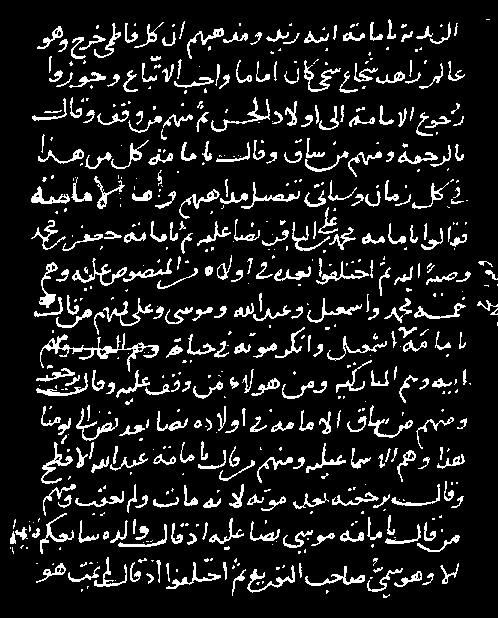 الزيدية بامامة ابنه زيد ومذهبهم ان كل فاطمي خرج وهو
عالم زاهد شجاع سخي كان اماما واجب الاتباع وجوزوا
رجوع الامامة الى اولاد الحسن ثم منهم من وقف وقالت
بالرجعة ومنهم من ساق وقالت بامامة كل من هذا
في كل زمان وسياتي تفصيل مذاهبهم وأما الامامية
فقالوا بامامة محمد بن علي الباقر نصا عليه ثم بامامة جعفر بن محمد
وصية اليه ثم اختلفوا بعده في اولاده من المنصوص عليه وهم
خمسة محمد واسمعيل وعبد الله وموسى وعلي فمنهم من قال
بامامة اسمعيل وانكر موته في حياة
ابيه وهم المباركية ومن هولاء من وقف عليه وقال برجعته
ومنهم من ساق الامامة في اولاده نصا بعد نص الى يومنا
هذا وهم الاسماعيلية ومنهم من قال بامامة عبد الله الافطح
وقالت برجعته بعد موته لانه مات ولم يعقب ومنهم
من قال بامامة موسى نصا عليه اذ قال والده سابعكم قائمكم
الا وهو سمي صاحب التورية ثم اختلفوا اذ قال لم يمت هو